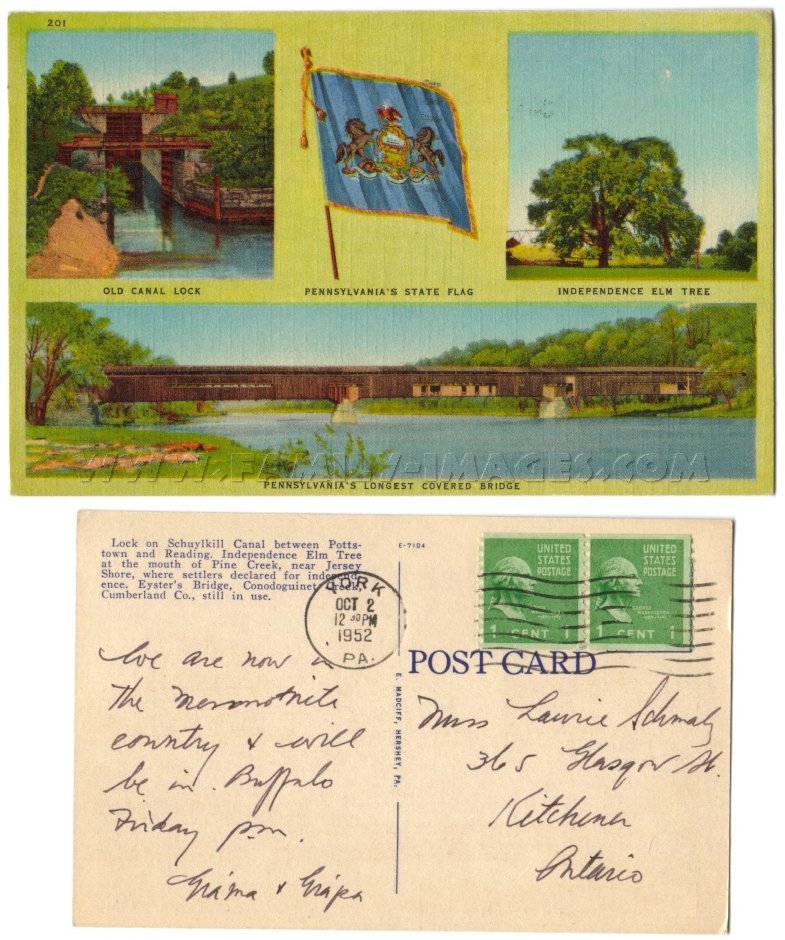 201
OLD CANAL LOCK
PENNSYLVANIA'S STATE FLAG
INDEPENDENCE ELM TREE
WWW.FAMILY-IMAGES.COM
PENNSYLVANIA'S LONGEST COVERED BRIDGE
Lock on Schuylkill Canal between Potts-
town and Reading. Independence Elm Tree
at the mouth of Pine Creek, near Jersey
Shore, where settlers declared for independ-
ence. Eyster's Bridge, Conodoguinet Creek,
Cumberland Co., still in use.
E-7104
YORK
OCT 2
12 30 PM
1952
PA.
UNITED
STATES
POSTAGE
GEORGE
WASHINGTON
1789-1797
1 CENT 1
UNITED
STATES
POSTAGE
GEORGE
WASHINGTON
1789-1797
1 CENT 1
POST CARD
E. MADCIFF, HERSHEY, PA.
We are now in
the Mennonite
country & will
be in Buffalo
Friday pm.
Grama & Grapa
Miss Laurie Schmalz
365 Glasgow St.
Kitchener
Ontario